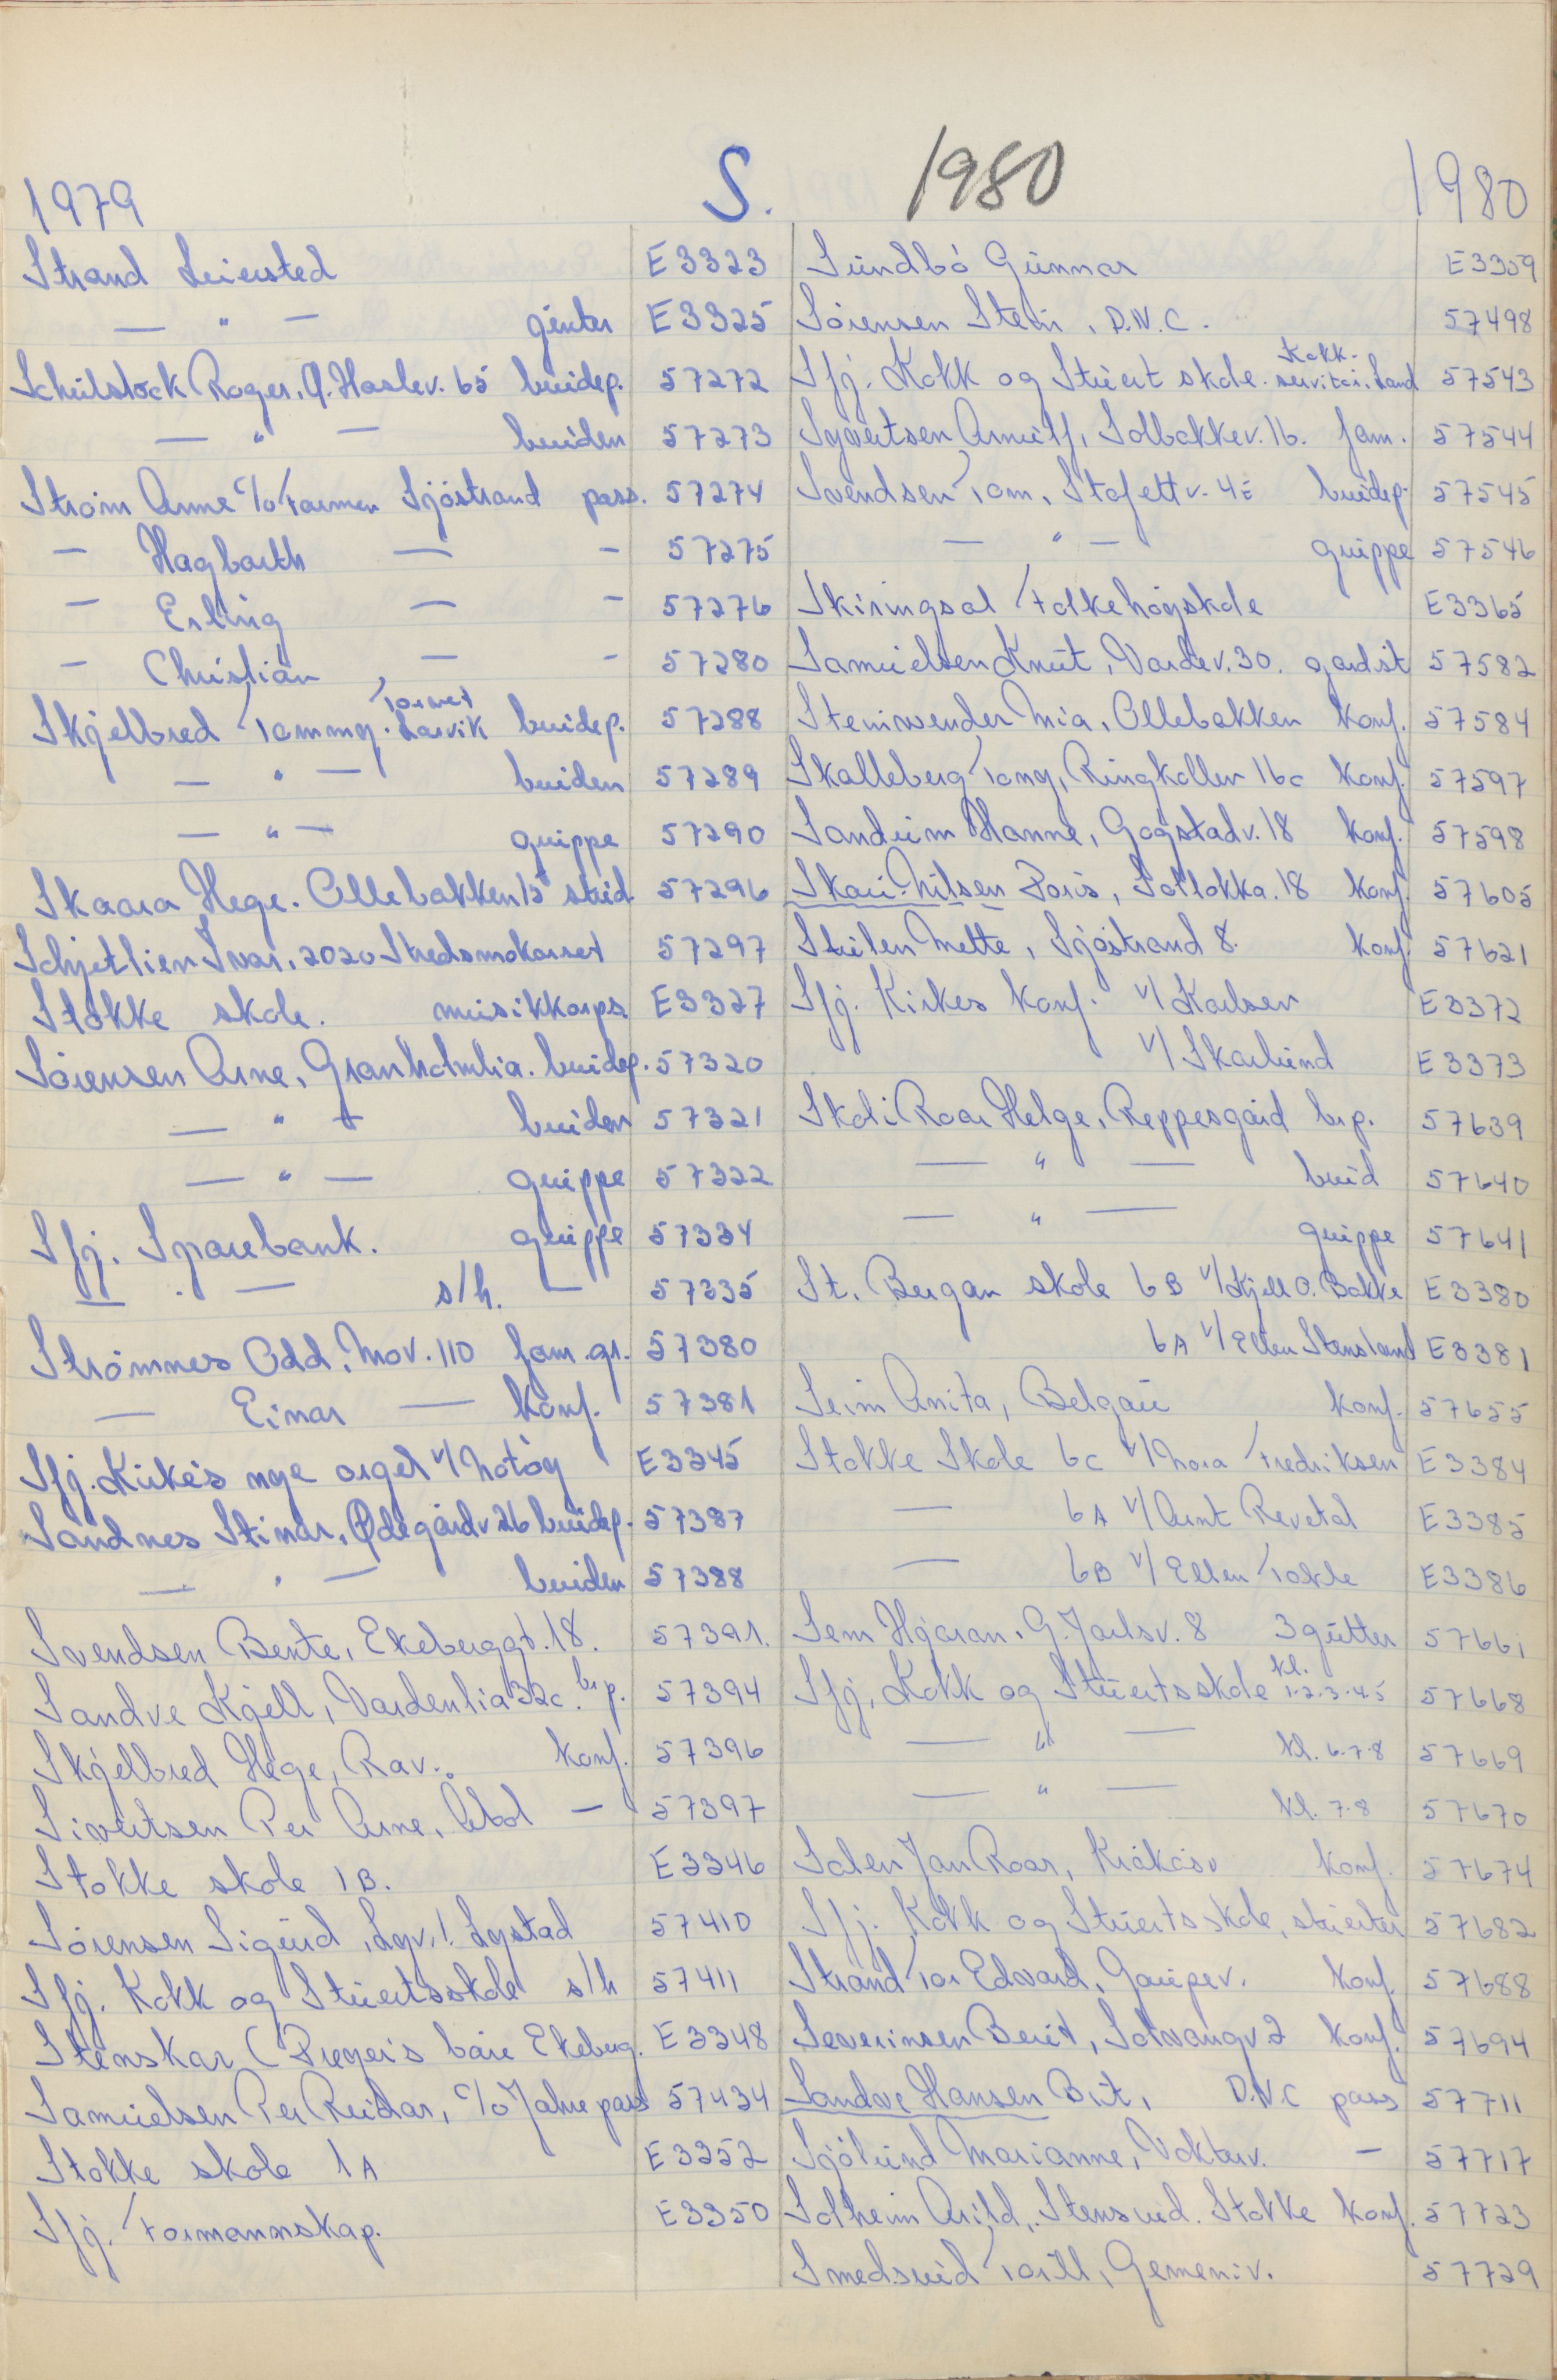 1979 S. 1980 1980
Strand Leirsted E3323
— " — jenter E3325
Roger. Q. Haslev. 65 brudep. 57272
— " — bruden 57273
Strøm Anne c/o Farmen Sjöstrand pass. 57274
— Hagbarth — — 57275
— Erling — — 57276
— Christian — — 57280
Skjelbred Tommy. Torvet Larvik brudep. 57288
— " — bruden 57289
— " — gruppe 57290
Skaara Hege. Ollebakken 15 stud 57296
Schjetlien Ivar, 2020 Skedsmokorset 57297
Stokke skole. musikkorps E3327
Sörensen Arne, Granholmlia. brudep. 57320
— " — bruden 57321
— " — gruppe 57322
Sfj. Sparebank. gruppe 57334
— . — s/h. — 57335
Strömnes Odd, Mov. 110 fam.gr. 57380
— Einar — konf. 57381
Sfj. Kirkes nye orgel v/ Notög E3345
Sandnes Steinar, Ødegårdv 26 brudep. 57387
— " — bruden 57388
Svendsen Bente, Ekeberggt. 18. 57391.
Sandve Kjell, Vardenlia 32c. br p. 57394
Skjelbred Hege, Rav.. konf. 57396
Sivertsen Per Arne, — 57397
Stokke skole 1B. E3346
Sörensen Sigurd, Lystad 57410
Sfj. Kokk og Stuertsskole s/h 57411
Stenskar (Preyers bare Ekeberg. E3348
Samuelsen Per Reidar, c/o Jahre pass 57434
Stokke skole 1A E3352
Sfj. Formannskap. E3350
Sundbö Gunnar E3359
Sörensen Stein, D.N.C. 57498
Sfj. Kokk og Stuert skole. Kokk- servitör. Land 57543
Syvertsen Arnulf, Solbakkev. 16. fam. 57544
Svendsen Tom, Stafettv. 4E brudep. 57545
— " — gruppe 57546
Skiringsal Folkehögskole E3365
Samuelsen Knut, Vardev. 30. gardist 57582
Steinwender Mia, Ollebakken konf. 57584
Skalleberg Tony, Ringkollen 16c konf. 57597
Sandum Hanne, Gogstadv. 18 konf. 57598
Skau-Nilsen Doris, Sollökka. 18 konf. 57605
Stulen Mette, Sjöstrand 8. konf. 57621
Sfj. Kirkes konf. v/ Karlsen E3372
v/ Skarlund E3373
Skoli Roar Helge, Reppesgård br.p. 57639
— " — brud 57640
— " — gruppe 57641
St. Bergan skole 6 B v/ Kjell O. Bakke E3380
6 A v/ Ellen Stensland E3381
Seim Anita, Belgau konf. 57655
Stokke Skole 6 C v/ Nora Fredriksen E3384
— 6 A v/ Aunt Revetal E3385
— 6 B v/ Ellen Tokle E3386
Sem Hjaran, G. Jarlsv. 8 3 gutter 57661
Sfj. Kokk og Stuertsskole kl. 1-2-3-4-5 57668
— " — kl. 6-7-8 57669
— " — kl. 7-8 57670
Solen Jan Roar, Kråkåsv konf. 57674
Sfj. Kokk og Stuertsskole, stuerter 57682
Strand Tor Edvard, Gaupev. konf. 57688
Severinsen Berit, Solvangv 2 konf. 57694
Sandve Hansen Brit, D.N.C pass 57711
Sjölund Marianne, Vokterv. — 57717
Solheim Arild, Stensrud. Stokke konf. 57723
Smedsrud Torill, Gemeniv. 57729